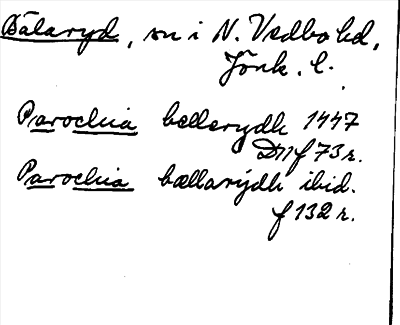 Bälaryd, sn i N. Vedbo hd,
Jönk. l.
Parochia bellerydh 1447
Dn f 73 r.
Parochia bællarydh ibid.
f 132 r.